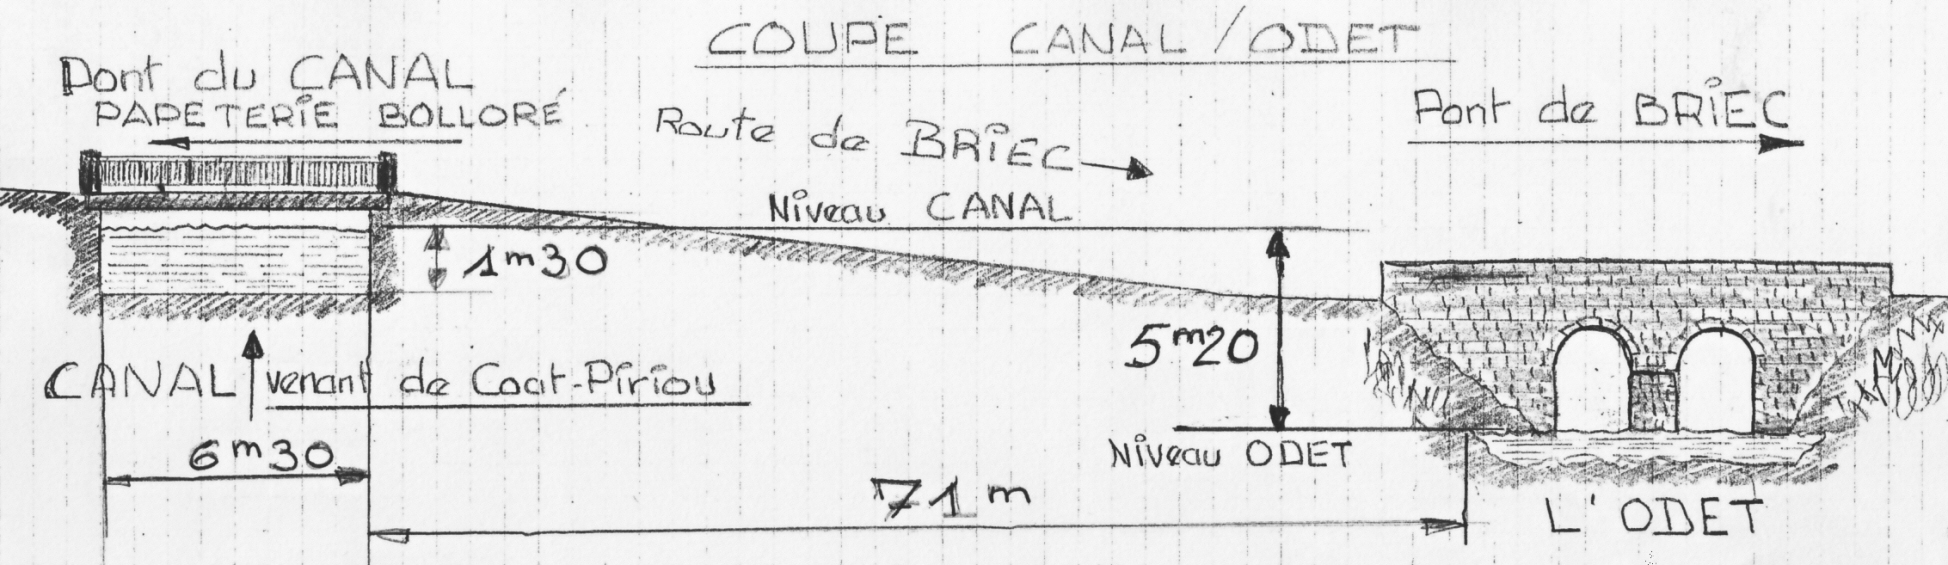 COUPE CANAL / ODET
Pont du CANAL
PAPETERIE BOLLORÉ
Route de BRIEC
Pont de BRIEC
Niveau CANAL
1m30
5m20
CANAL venant de Coat-Piriou
6m30
Niveau ODET
71m
L'ODET